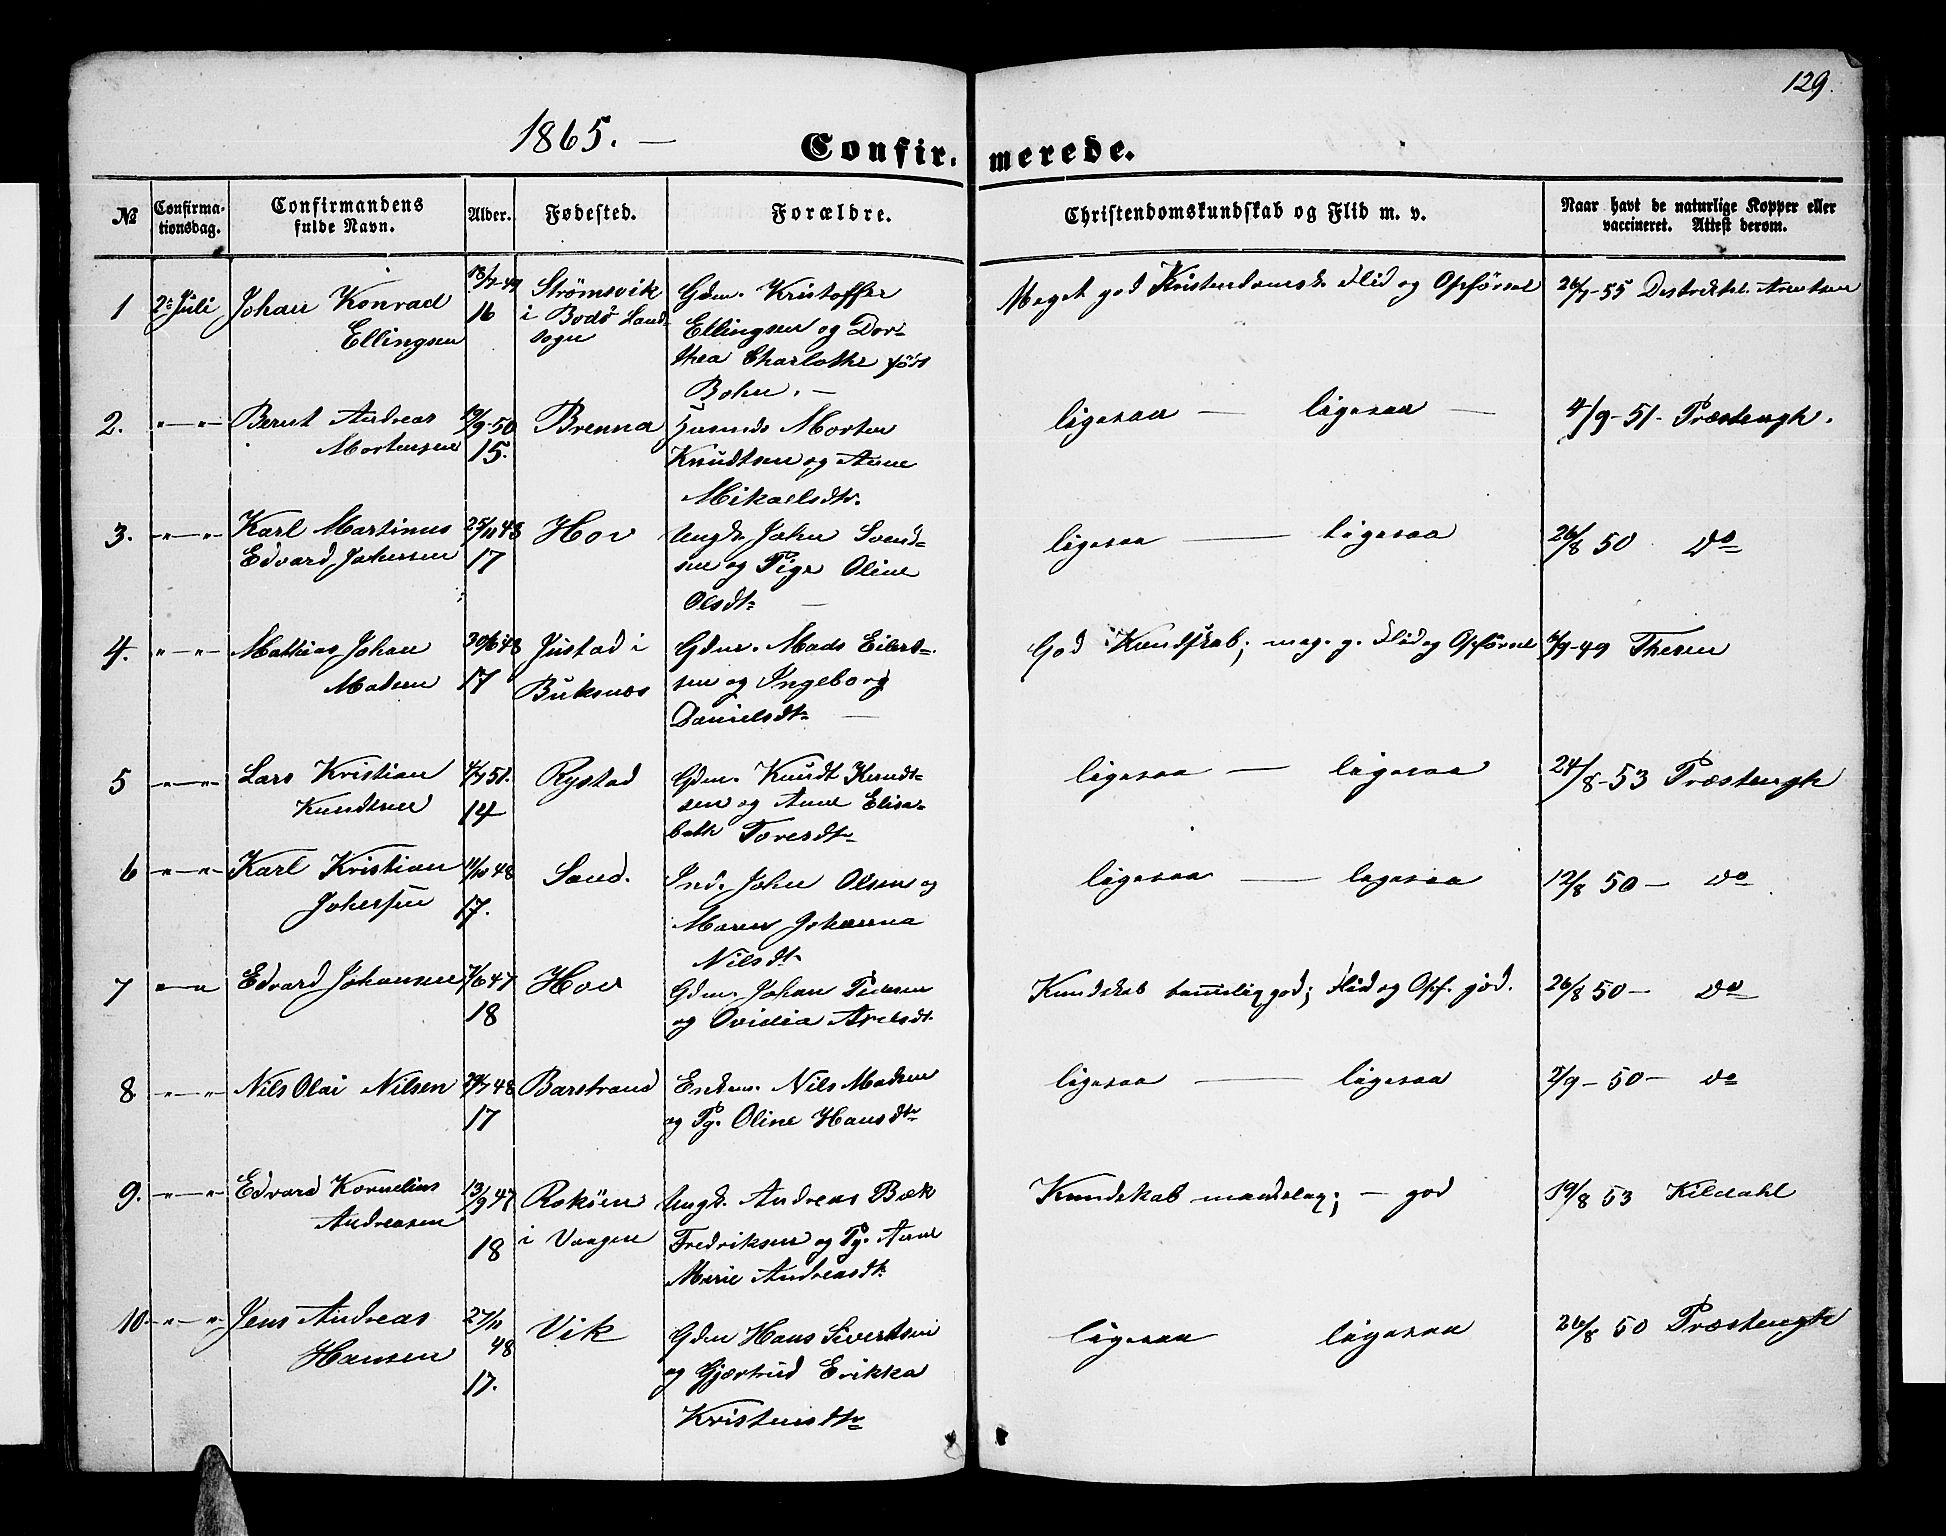 129.
1865. —
Confir- merede.
№
Confirma-
tionsdag.
Confirmandens
fulde Navn.
Alder.
Fødested.
Forældre.
Christendomskundskab og Flid m. v.
Naar havt de naturlige Kopper eller
vaccineret. Attest derom.
1 2den Juli Johan Konrad Ellingsen
18/7-49
16
Strømsvik
i Bodø Land-
sogn
Gdm. Kristoffer
Ellingsen og Dor-
thea Charlotte født
Bohn. —
Meget god Kristendomsk. Flid og Opførsel
26/7-55
2. „ — „ Bernt Andreas
Mortensen
19/9-50
15.
Brenna
Husmd. Morten
Knudtsen og Anne
Mikaelsdtr.
ligesaa — ligesaa —
4/9-51- Præstengh.
3. „ — „ Karl Martinus
Edvard Johnsen
25/11 48
17
Hov
Ungk. John Svend-
sen og Pige Oline
Olsdtr —
ligesaa — ligesaa
26/8 50 Do
4. „ — „ Mattias Johan
Madsen
30/6 48
17
Justad i
Buksnæs
Gdm. Mads Eilert-
sen og Ingeborg
Danielsdtr —
God Kundskab; meg. g. Flid og Opførsel
9-49
5 „ — „ Lars Kristian
Knudtsen
51.
14
Rystad
Gdm. Knudt Knudt-
sen og Anne Elisa-
beth Toresdtr
ligesaa — ligesaa
24/8-53 Præstengh
6 „ — „ Karl Kristian
Johnsen
11/10 48
17.
Sand.
Ind. John Olsen og
Maren Johanna
Nilsdtr
ligesaa — ligesaa
12/8 50 — Do
7 „ — „ Edvard Johansen
6 47
18
Hov
Gdm. Johan Pedersen
og Ovidia Axelsdtr.
Kundskab temmelig god; Flid og Opf. god.
26/8 50 — Do
8 „ — „ Nils Olai Nilsen
48
17
Barstrand
Enkem. Nils Madsen
og Pg. Oline Hansdtr
ligesaa — ligesaa
9-50 — Do
9. „ — „ Edvard Kornelius
Andreasen
13/9 47
18
Roköen
i Vaagen
Ungk. Andreas Bæk
Fredriksen og Pg. Anne
Marie Andreasdtr.
Kundskab maadelag; — god
19/8 53 Kildahl
10. „ — „ Jens Andreas
Hansen
27/11
48
17.
Vik
Gdm Hans Sivertsen
og Gjærtrud Erikka
Kristensdtr
ligesaa ligesaa
26/8 50 Præstengh